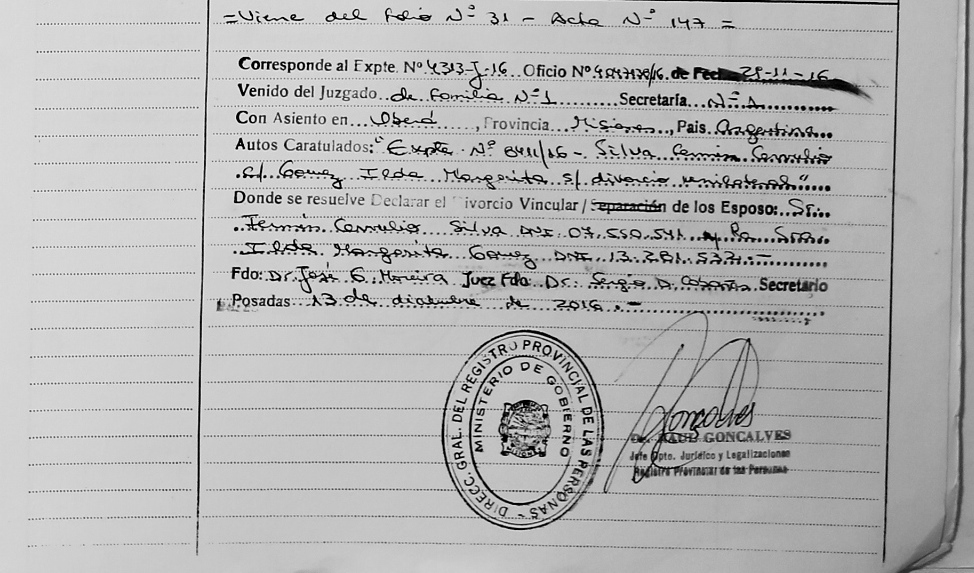 =Viene del folio Nº 31 - Acta Nº 147 =
Corresponde al Expte. Nº 4313-J-16 Oficio Nº de Fecha 29-11-16
Venido del Juzgado de Familia Nº1 Secretaría Nº 1
Con Asiento en Oberá, Provincia Misiones, País Argentina
Autos Caratulados: "Expte. Nº 8411/16 - Silva
c/ Gomez Ilda Margarita s/ divorcio unilateral"
Donde se resuelve Declarar el Divorcio Vincular / Separación de los Esposo: Sr.
Silva DNI 07.550.541 y la Sra.
Ilda Margarita Gomez DNI 13.281.
Fdo: Dr. Jose G. Moreira Juez Fdo Dr. Sergio D. Secretario
Posadas 13 de diciembre de 2016.-
DIRECC. GRAL. DEL REGISTRO PROVINCIAL DE LAS PERSONAS -
MINISTERIO DE GOBIERNO
Goncalves
Dr. RAUL GONCALVES
Jefe Dpto. Jurídico y Legalizaciones
Registro Provincial de las Personas